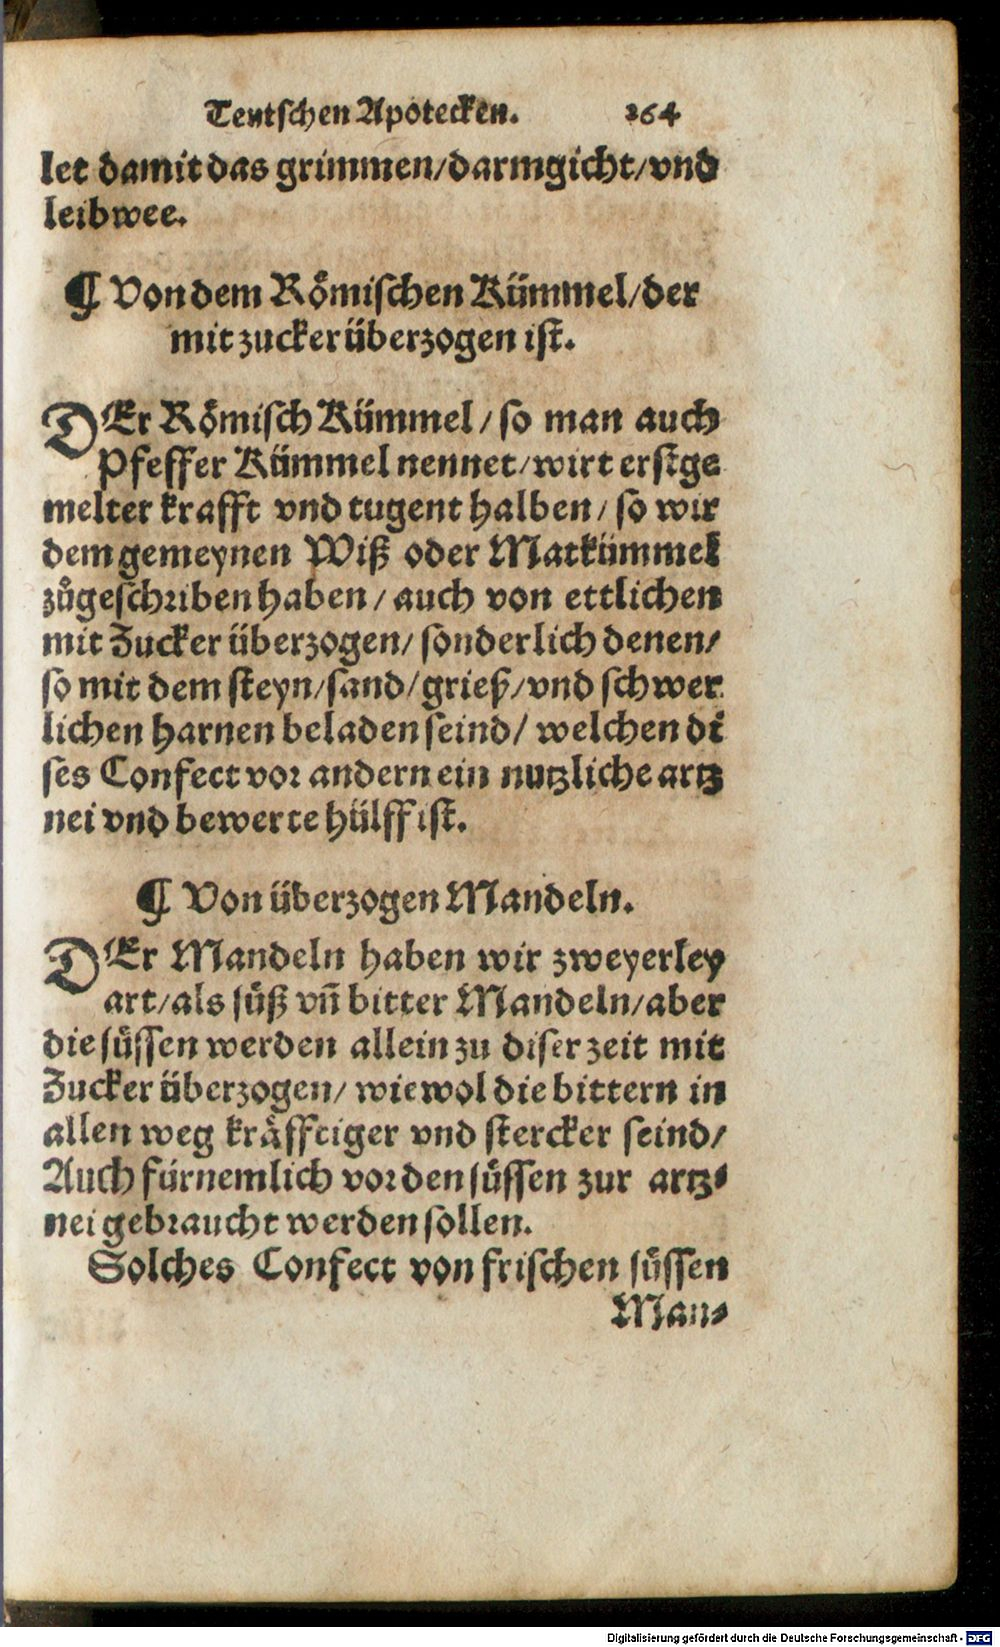 Teutschen Apotecken. 264
let damit das grimmen/darmgicht/vnd
leibwee.
¶ Von dem Rőmischen Kümmel/der
mit zucker überzogen ist.
DEr Rőmisch Kümmel/so man auch
Pfeffer Kümmel nennet/wirt erstge
melter krafft vnd tugent halben/so wir
dem gemeynen Wiß oder Matkümmel
zůgeschriben haben/auch von ettlichen
mit Zucker überzogen/sonderlich denen/
so mit dem steyn/sand/grieß/vnd schwer
lichen harnen beladen seind/welchen di
ses Confect vor andern ein nutzliche artz
nei vnd bewerte hülff ist.
¶ Von überzogen Mandeln.
DEr Mandeln haben wir zweyerley
art/als süß vn̄ bitter Mandeln/aber
die süssen werden allein zu diser zeit mit
Zucker überzogen/wiewol die bittern in
allen weg kräfftiger vnd stercker seind/
Auch fürnemlich vor den süssen zur artz-
nei gebraucht werden sollen.
Solches Confect von frischen süssen
Man-
Digitalisierung gefördert durch die Deutsche Forschungsgemeinschaft - DFG